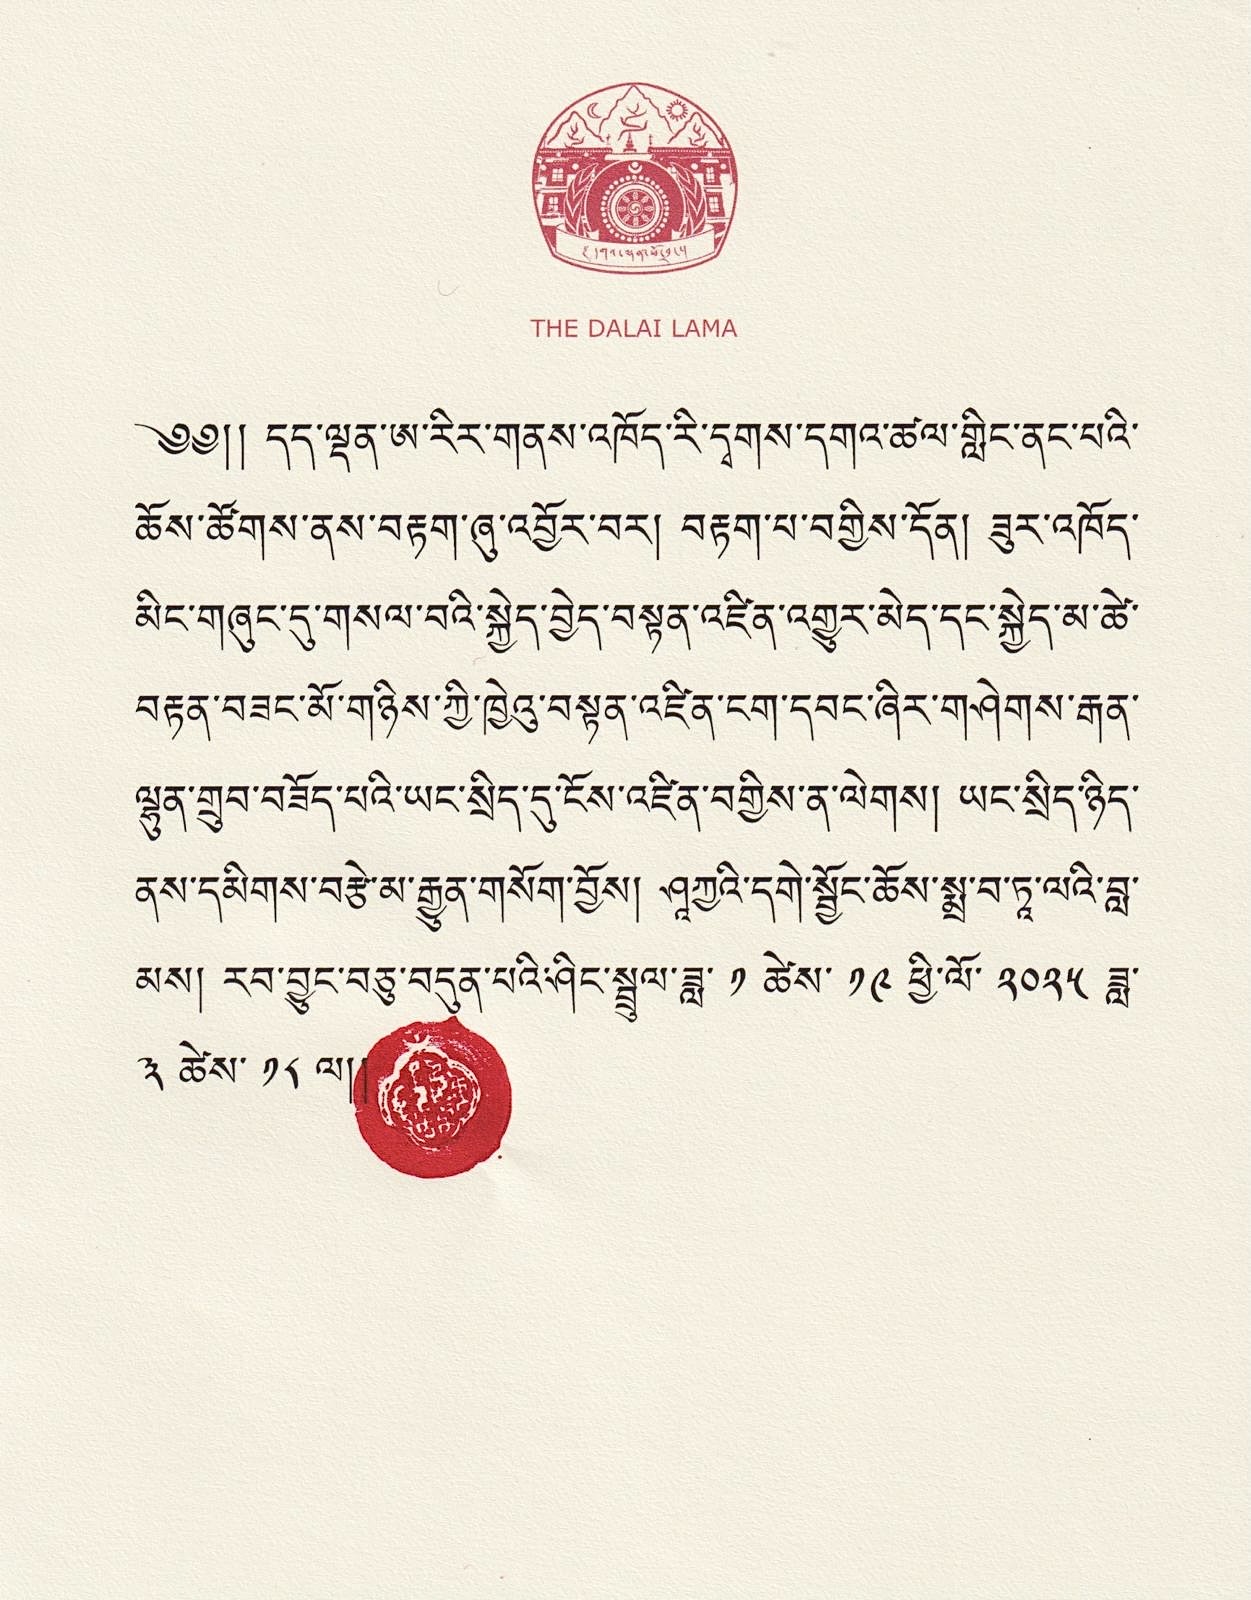 THE DALAI LAMA
༄༅།། དད་ལྡན་ཨ་རིར་གནས་འཁོད་རི་དྭགས་དགའ་ཚལ་གླིང་ནང་པའི་
ཆོས་ཚོགས་ནས་བརྟག་ཞུ་འབྱོར་བར། བརྟག་པ་བགྱིས་དོན། ཟུར་འཁོད་
མིང་གཞུང་དུ་གསལ་བའི་སྐྱེད་བྱེད་བསྟན་འཛིན་འགྱུར་མེད་དང་སྐྱེད་མ་ཚེ་
བརྟན་བཟང་མོ་གཉིས་ཀྱི་ཁྱེའུ་བསྟན་འཛིན་ངག་དབང་ཞིར་གཤེགས་རྒན་
ལྷུན་གྲུབ་བཟོད་པའི་ཡང་སྲིད་དུ་ངོས་འཛིན་བགྱིས་ན་ལེགས། ཡང་སྲིད་ཉིད་
ནས་དམིགས་བརྩེ་མ་རྒྱུན་གསོག་བྱོས། ཤཱཀྱའི་དགེ་སྦྱོང་ཆོས་སྨྲ་བ་ཏཱ་ལའི་བླ་
མས། རབ་བྱུང་བཅུ་བདུན་པའི་ཤིང་སྦྲུལ་ཟླ་ ༡ ཚེས་ ༡༩ ཕྱི་ལོ་ ༢༠༢༥ ཟླ་
༣ ཚེས་ ༡༨ ལ།།